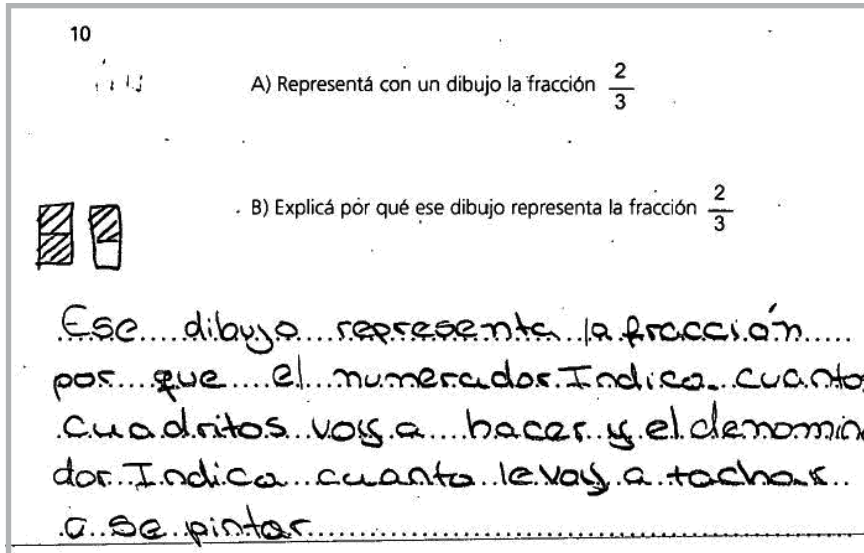 10
A) Representá con un dibujo la fracción 2/3
B) Explicá por qué ese dibujo representa la fracción 2/3
Ese dibujo representa la fracción
por que el numerador Indica cuanto
cuadritos voy a hacer y el denomin
dor Indica cuanto le voy a tachar
a se pintar